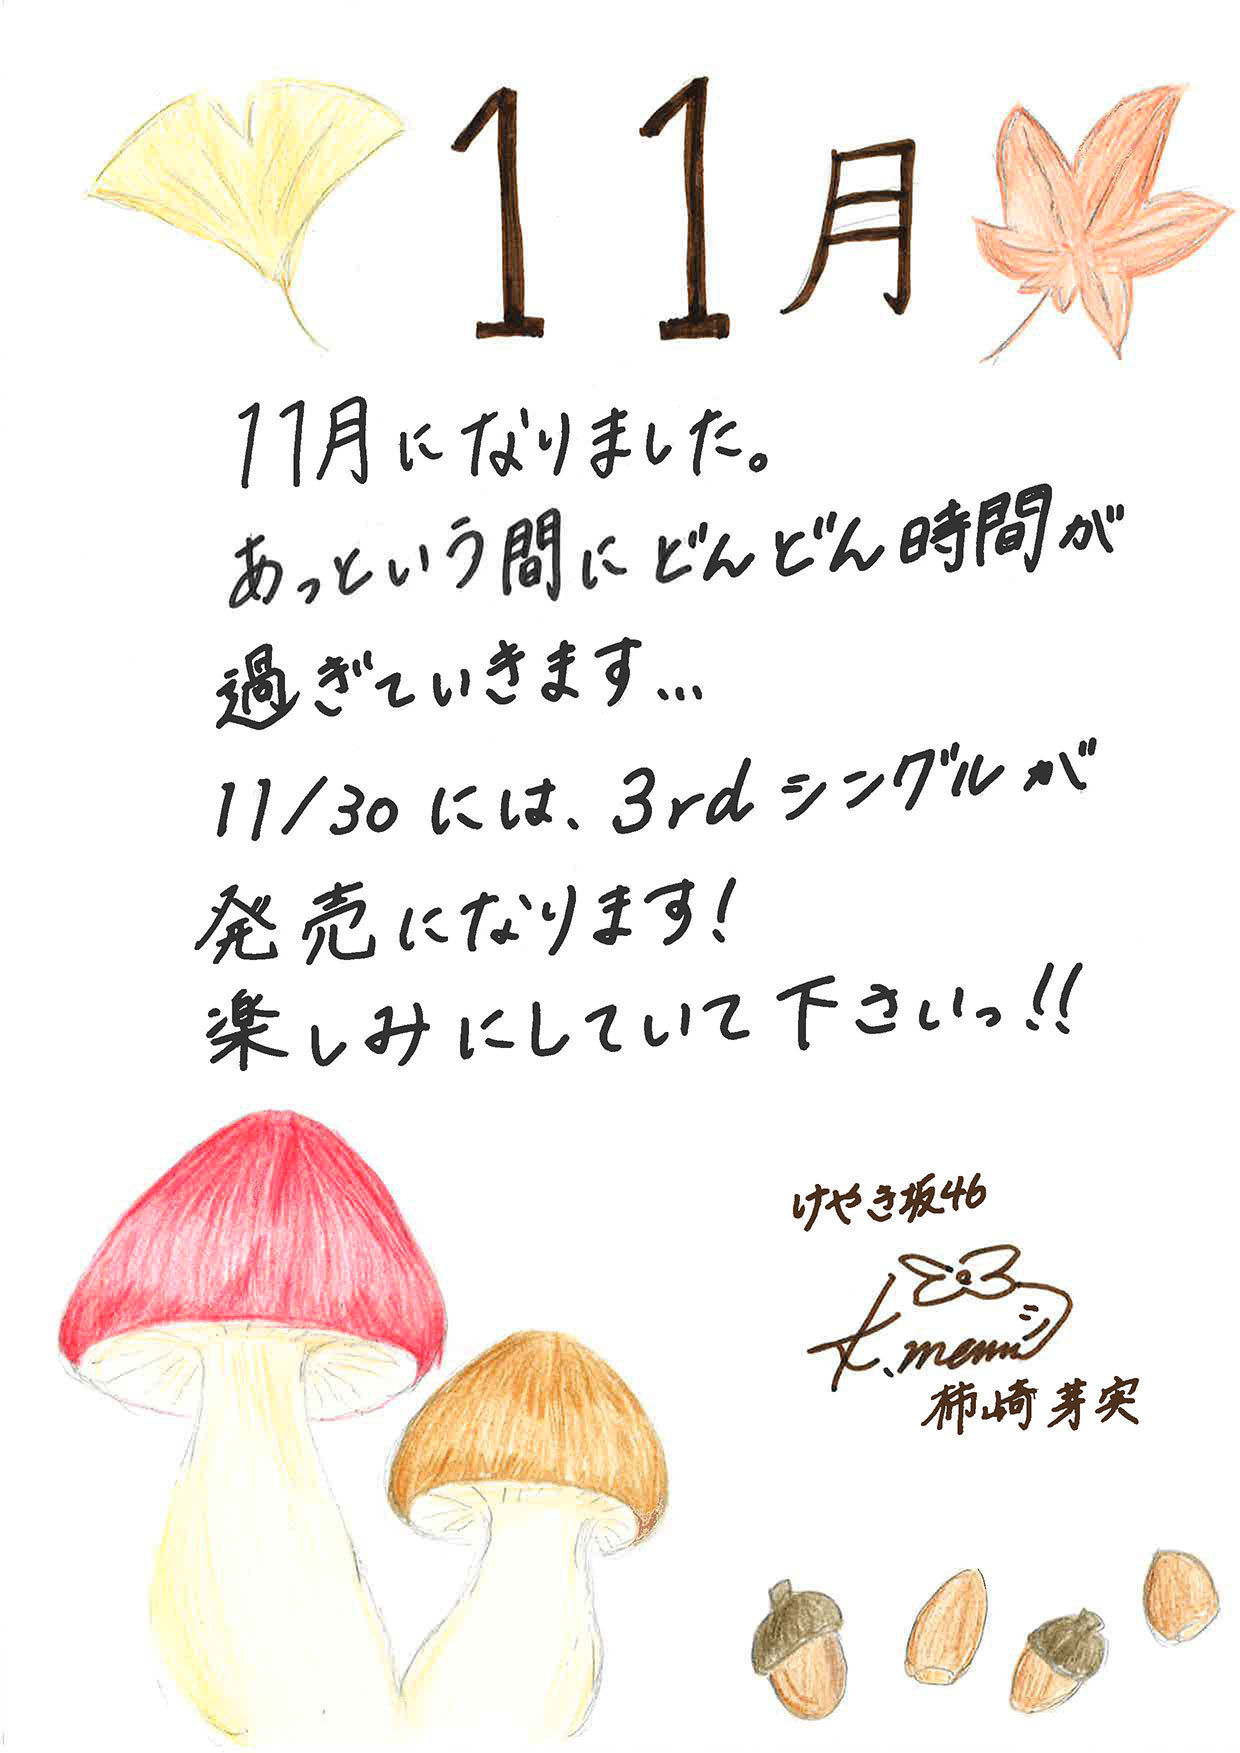 11月
11月になりました。
あっという間にどんどん時間が
過ぎていきます...
11/30には、3rdシングルが
発売になります!
楽しみにしていて下さいっ!!
けやき坂46
K.memi
柿崎芽実